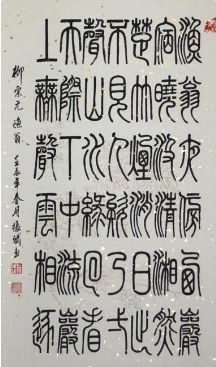 漁翁夜傍西巖
宿曉汲清湘然
楚竹煙消日出
不見人欸乃一
聲山水綠迴看
天際下中流巖
上無心雲相逐
柳宗元 漁翁 壬辰年春月